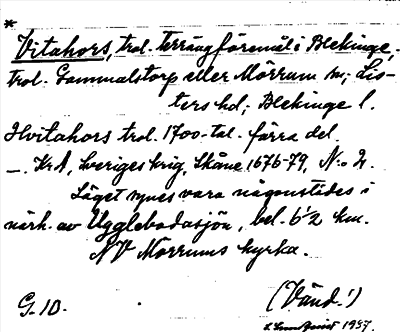 *
Vitahors, trol. terrängföremål i Blekinge,
trol. Gammalstorp eller Mörrum sn; Lis-
ters hd; Blekinge l.
Hvitahors trol. 1700-tal. förra del.
—. KrA, Sveriges krig, Skåne 1676-79, N:o 2.
Läget synes vara någonstädes i
närh. av Ugglebodasjön, bel. 6 1/2 km.
NV Mörrums kyrka.
G. 10. (Vänd!)
1957